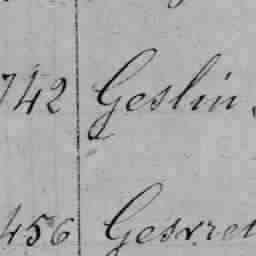 742 Geslin
456 Gesvret